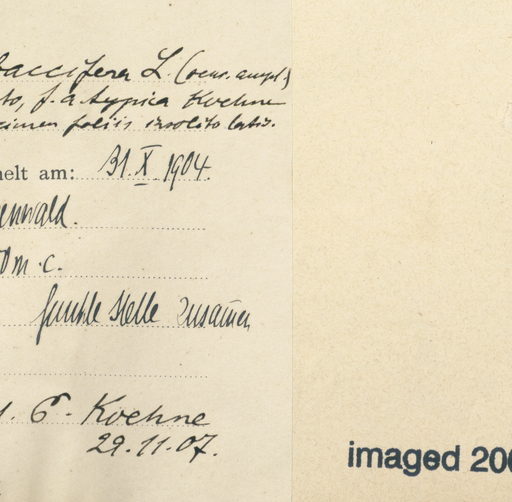 baccifera L. (sens. ampl.)
to, f. a typica Koehne
cimen foliis insolito latis.
melt am: 31. X. 1904.
enwald.
0 m. c.
feuchte Stelle zusammen
. E. Koehne
29. 11. 07.
imaged 200